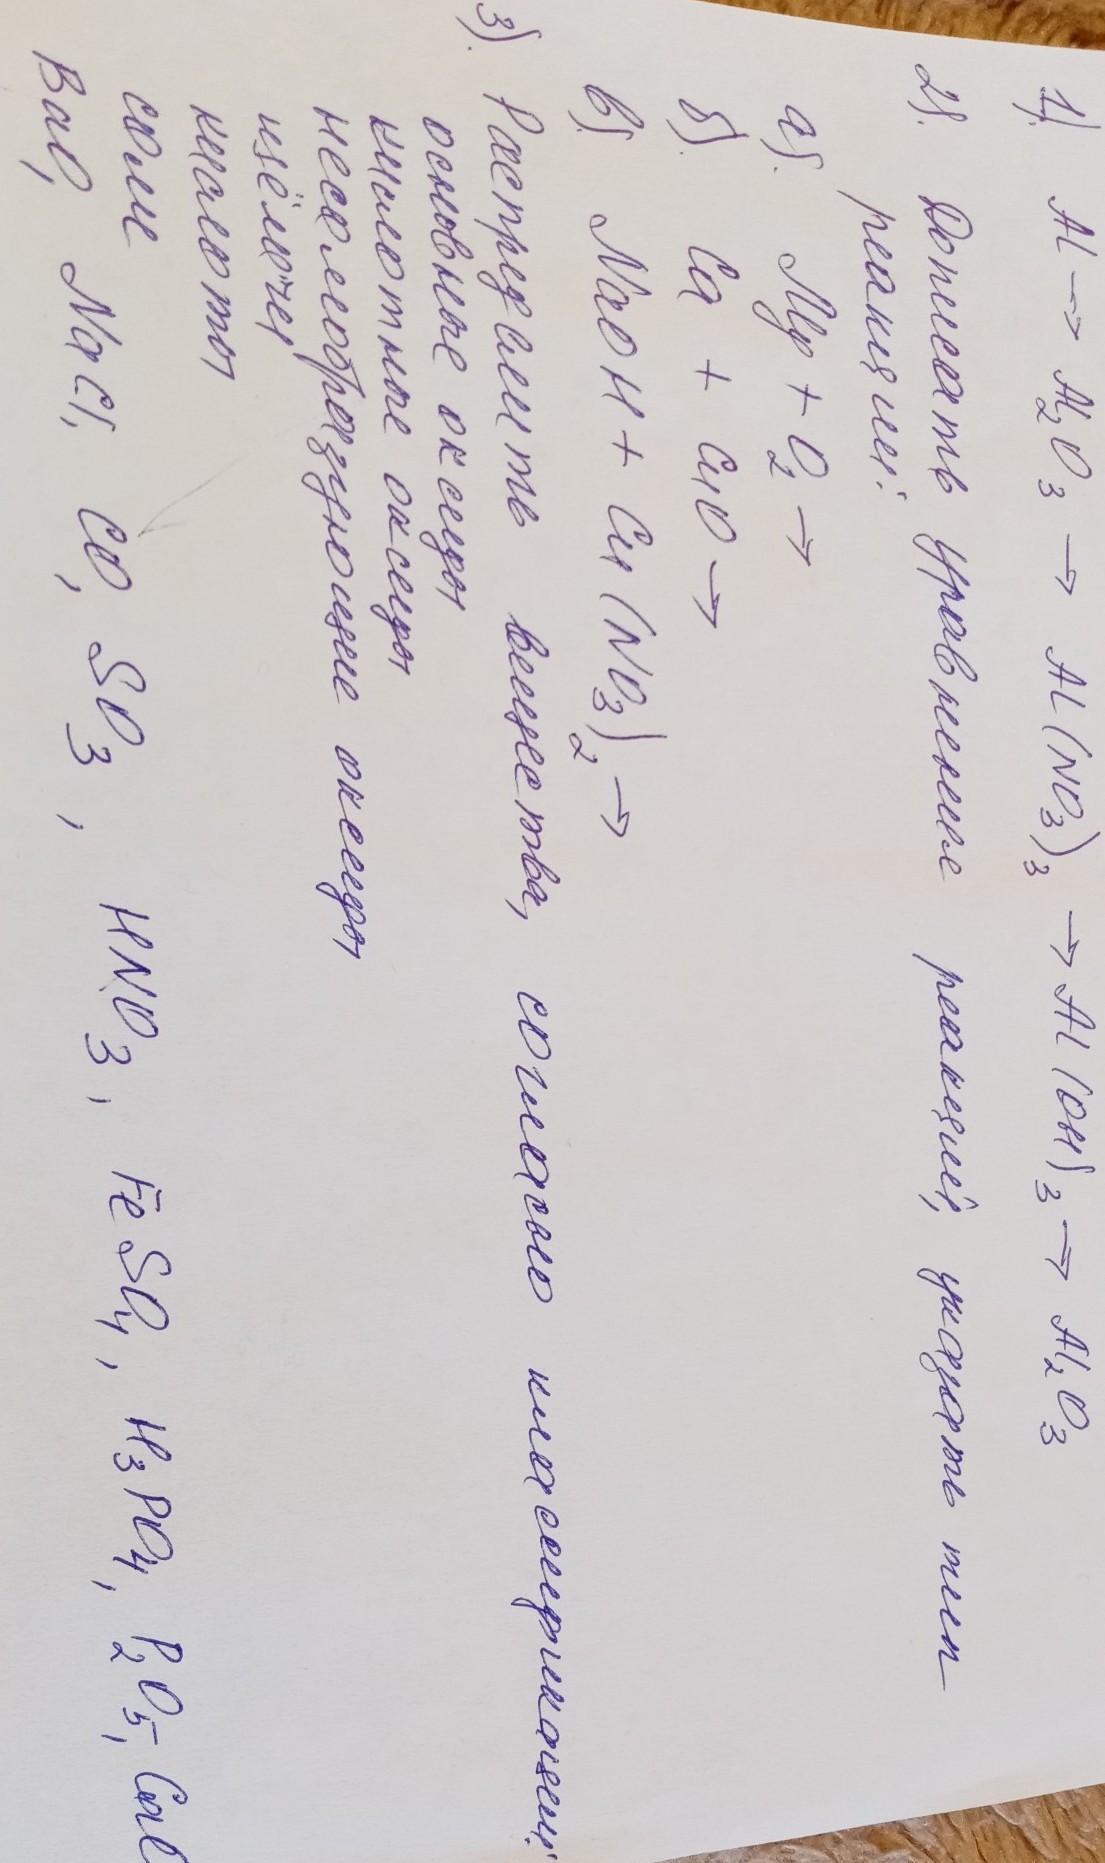 1). Al → Al₂O₃ → Al(NO₃)₃ → Al(OH)₃ → Al₂O₃
2). Дописать уравнение реакций, указать тип
реакции:
а). Mg + O₂ →
б). Ca + CuO →
в). NaOH + Cu(NO₃)₂ →
3). Распределить вещества, согласно классификации:
основные оксиды
кислотные оксиды
несолеобразующие оксиды
щёлочи
кислоты
соли
BaO, NaCl, CO, SO₃, HNO₃, FeSO₄, H₃PO₄, P₂O₅, CaO